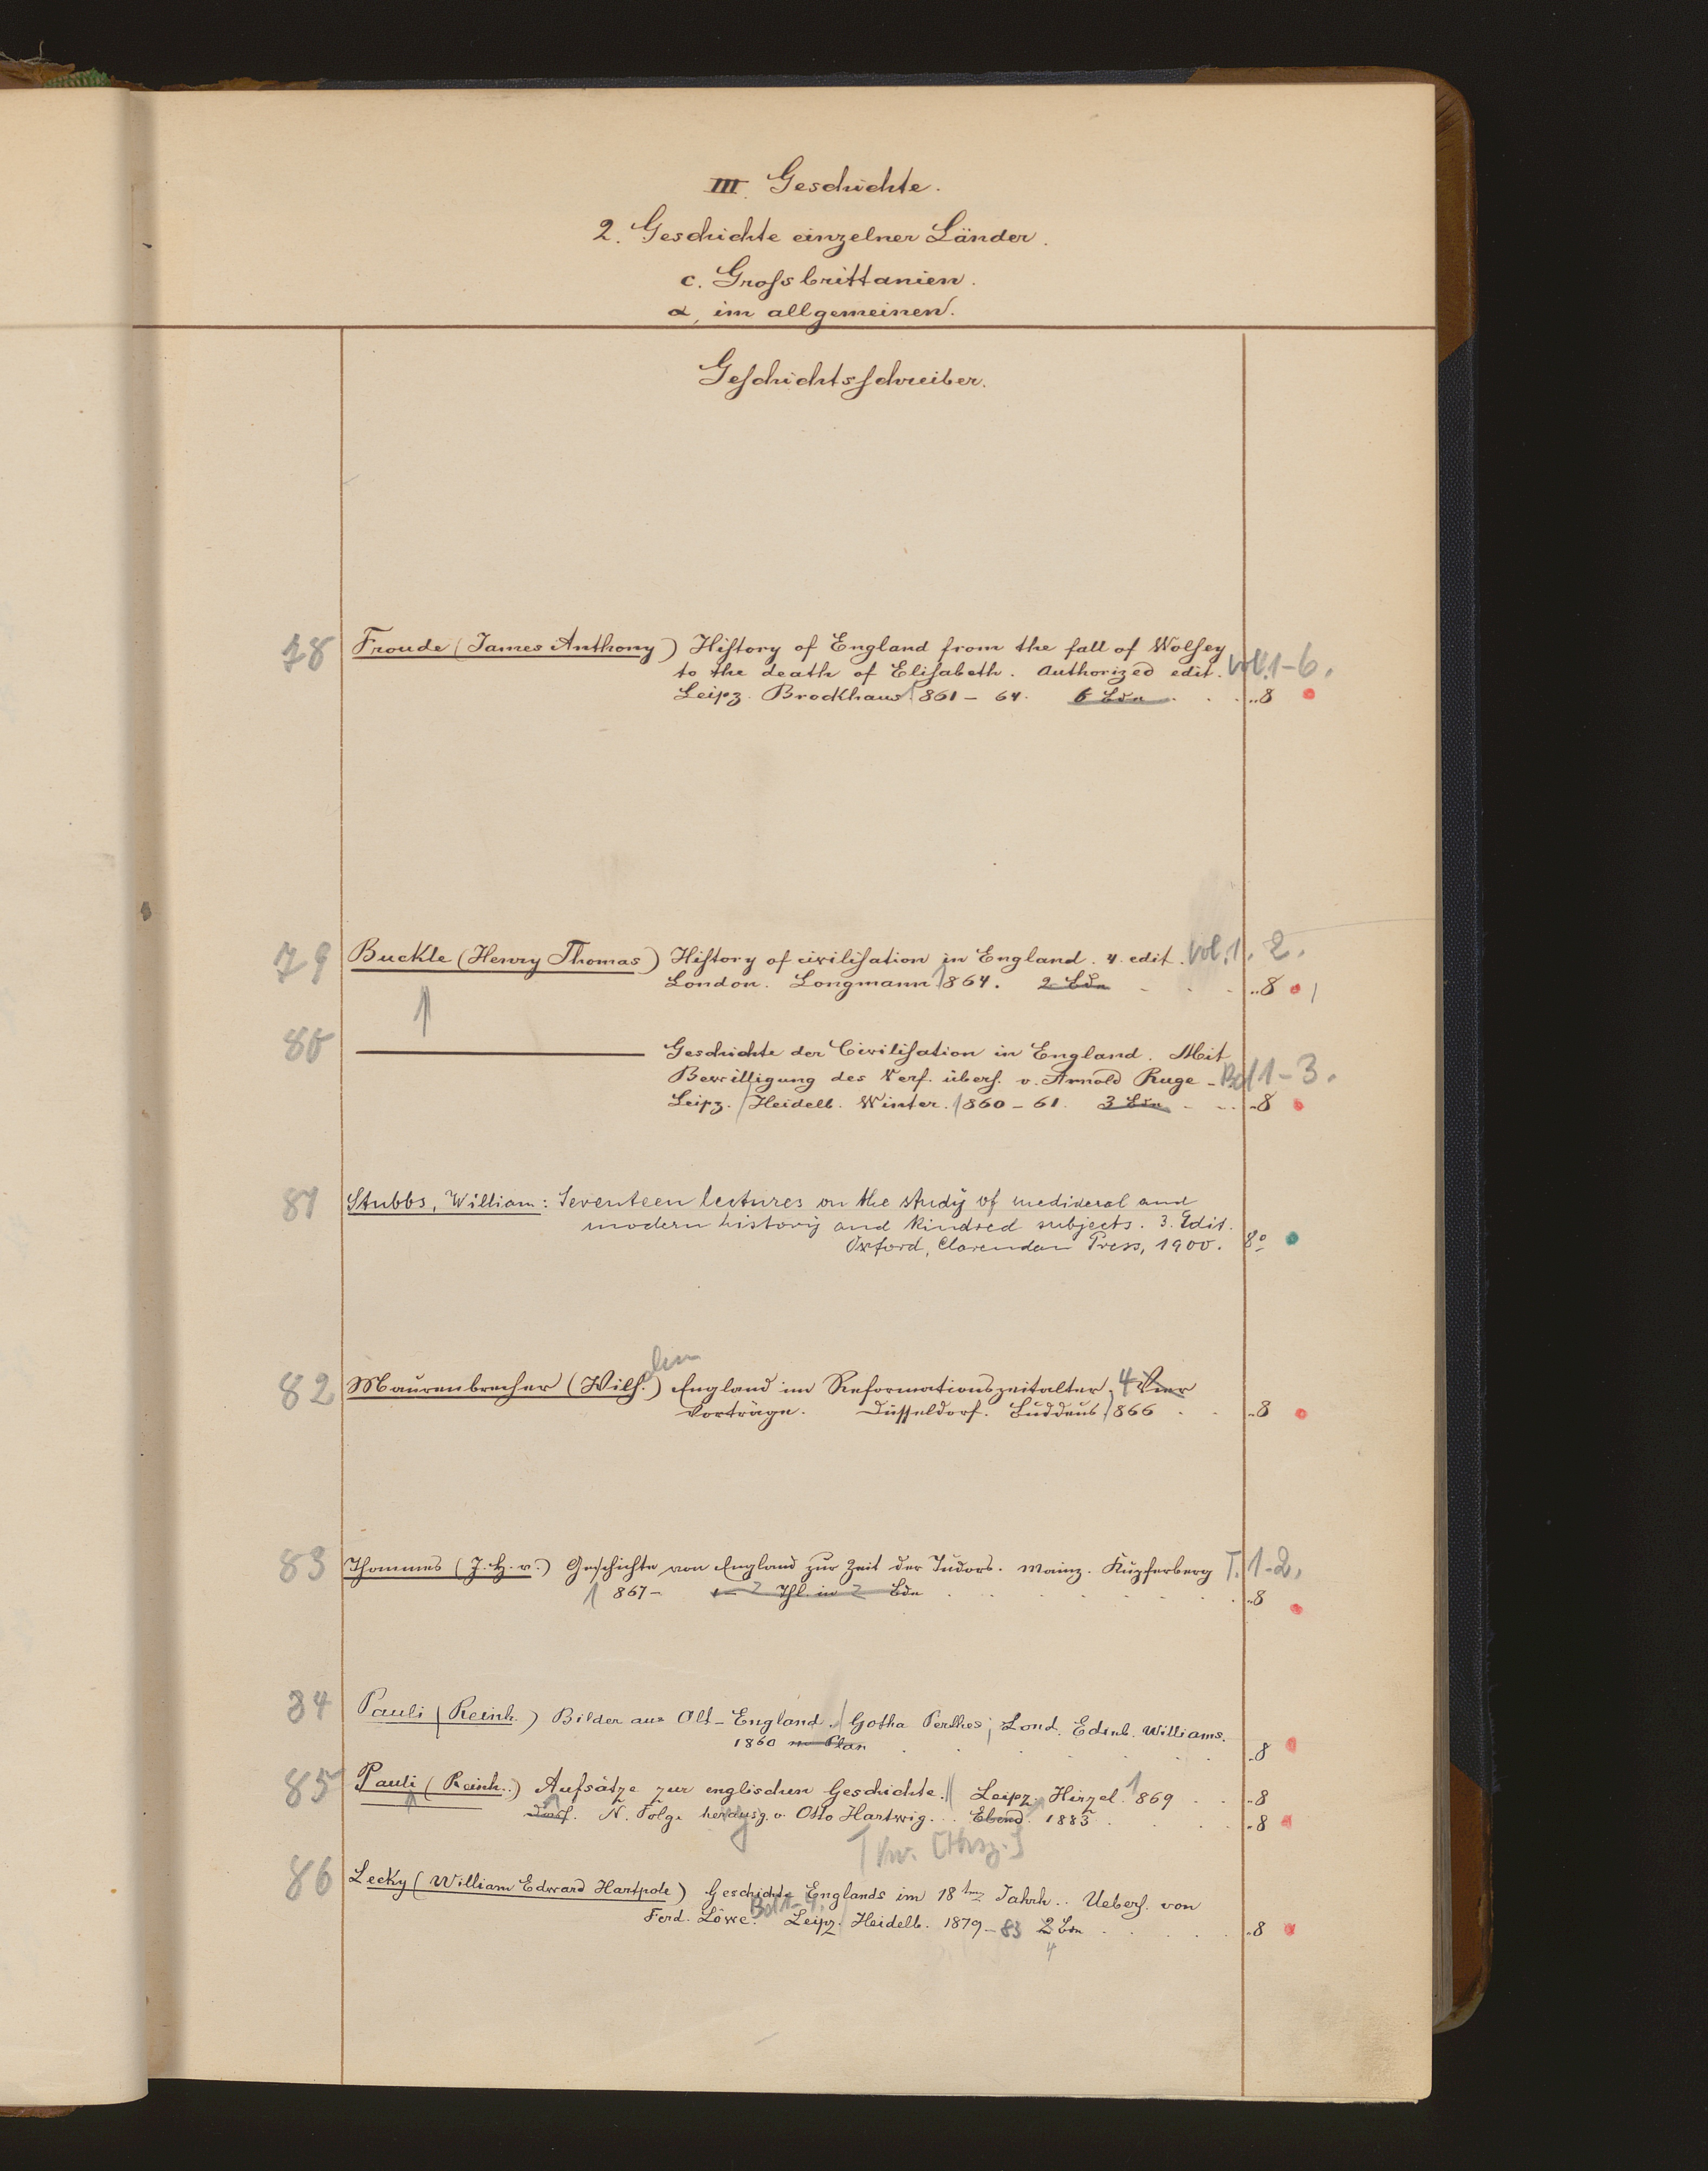 III. Geschichte.
2. Geschichte einzelner Länder.
c. Grossbrittanien.
α, im allgemeinen.
Geschichtsschreiber.
78 Froude (James Anthony) History of England from the fall of Wolsey
to the death of Elisabeth. Authorized edit. Vol. 1-6.
Leipz. Brockhaus 1861-64. 6 Bdn ..8
79 Buckle (Henry Thomas) History of civilisation in England. 4. edit. Vol. 1. 2.
London. Longmann 1864. 2 Bdn ..8
80 Geschichte der Civilisation in England. Mit
Bewilligung des Verf. übers. v. Arnold Ruge - Bd 1-3.
Leipz. / Heidelb. Winter. 1860-61. 3 Bdn ..8
81 Stubbs, William: Seventeen lectures on the study of medideral and
modern history and kindred subjects. 3. Edit.
Oxford, Clarendon Press, 1900. 8°
82 Maurenbrecher (Wilh.) helm England im Reformationszeitalter. 4 Vier
Vorträge. Düsseldorf. Buddeus 1866 ..8
83 Thommes (J. H. v.) Geschichte von England zur Zeit der Tudors. Mainz. Kupferberg T. 1-2.
1867- 2 Thl. in 2 Bdn ..8
84 Pauli (Reinh.) Bilder aus Alt-England. / Gotha Perthes; Lond. Edinb. Williams.
1860 m Plan .8
85 Pauli (Reinh.) Aufsätze zur englischen Geschichte. Leipz. Hirzel. 1869 ..8
Dass. N. Folge herausg. v. Otto Hartwig. Ebend. 1883 .8
86 Lecky (William Edward Hartpole) Geschichte Englands im 18ten Jahrh.. Uebers. von
Ferd. Löwe. Bd 1-4. Leipz. / Heidelb. 1879-83 2 Bdn .8
4